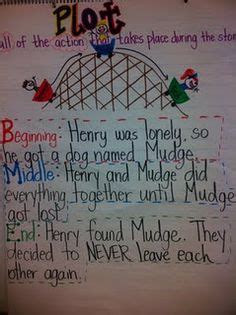 Plot
all of the action that takes place during the stor
Beginning: Henry was lonely, so
he got a dog named Mudge.
Middle: Henry and Mudge did
everything together until Mudge
got lost.
End: Henry found Mudge. They
decided to NEVER leave each
other again.